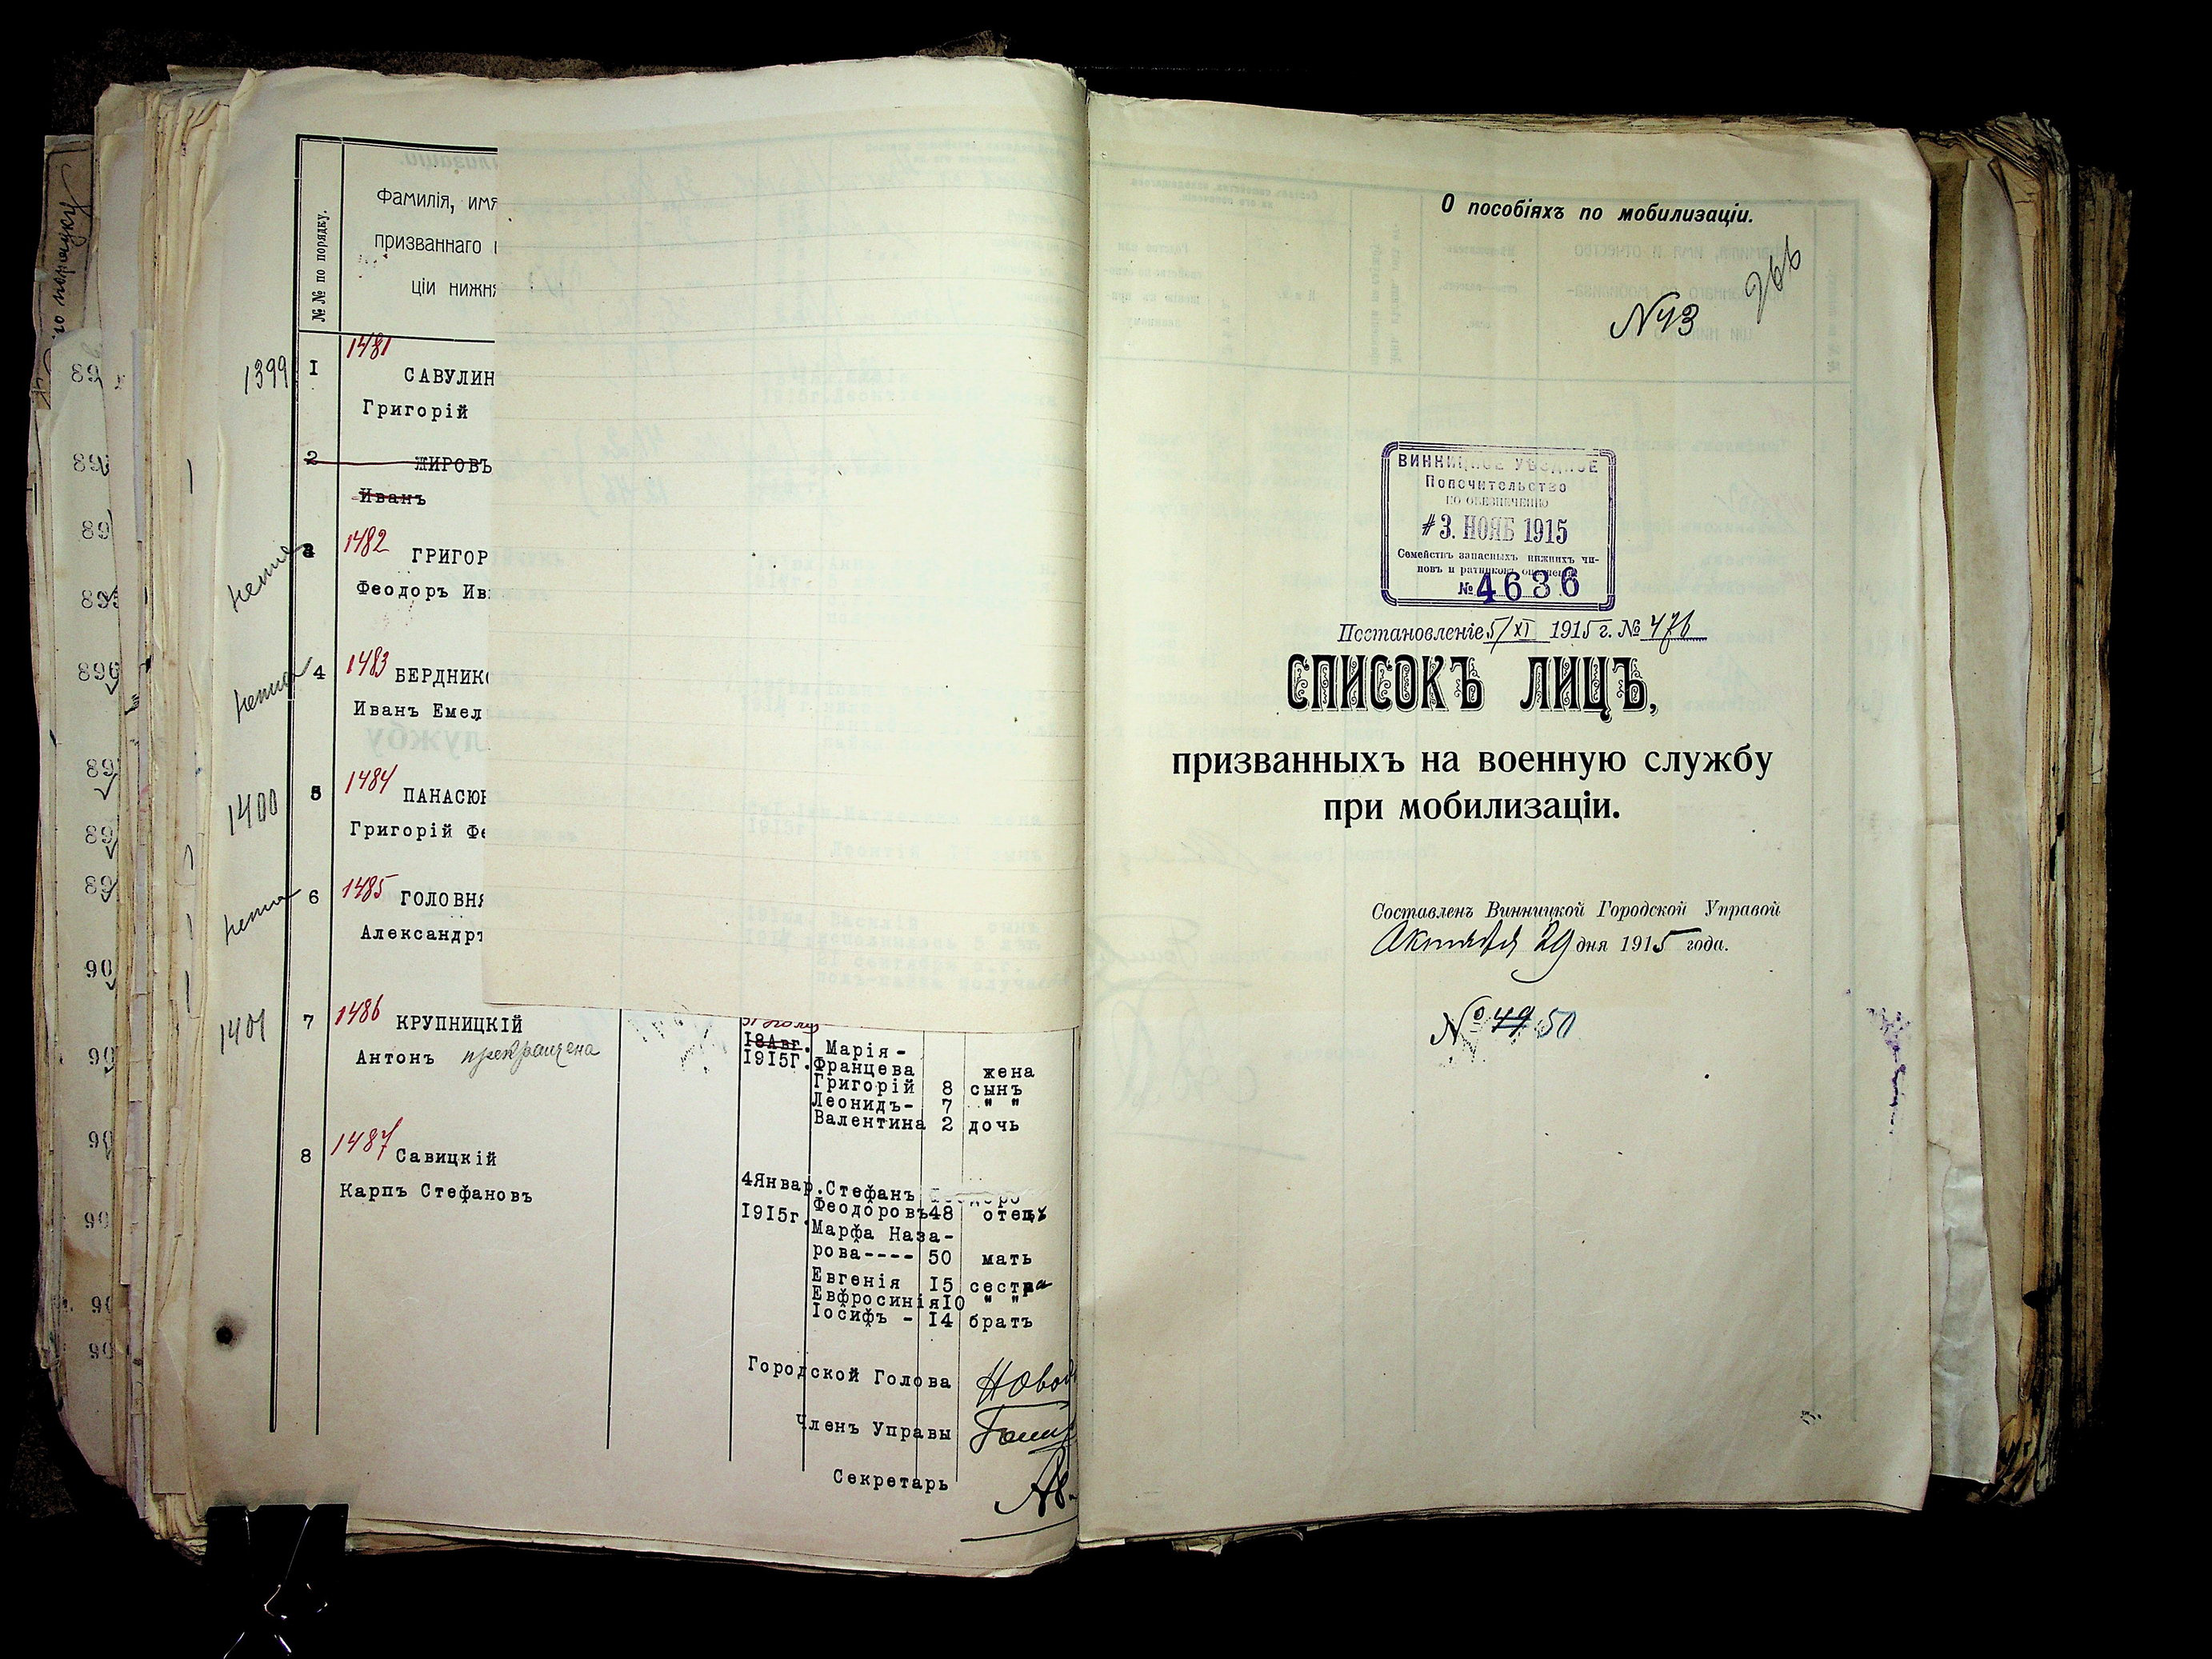 №№ по порядку.
Фамилія, имя
призваннаго
ціи нижн
1399
1
1481
САВУЛИН
Григорій
2
ЖИРОВЪ
Иванъ
1482
ГРИГОР
Феодоръ Ив
4
1483
БЕРДНИКО
Иванъ Емел
1400
5
1484
ПАНАСЮК
Григорій Фе
6
1485
ГОЛОВНЯ
Александръ
1401
7
1486
КРУПНИЦКІЙ
Антонъ прекращена
18Авг.
1915Г.
Марія-
Францева жена
Григорій 8 сынъ
Леонидъ- 7 " "
Валентина 2 дочь
8
1487
Савицкій
Карпъ Стефановъ
4Январ.
1915г.
Стефанъ
Феодоровъ 48 отецъ
Марфа Наза-
рова---- 50 мать
Евгенія 15 сестра
Евфросинія 10 " "
Іосифъ - 14 братъ
Городской Голова
Членъ Управы
Секретарь
О пособіяхъ по мобилизаціи.
N43
ВИННИЦКОЕ УѢЗДНОЕ
Попечительство
по обезпеченію
#3. НОЯБ 1915
Семействъ запасныхъ нижнихъ чи-
новъ и ратниковъ ополченія
№ 4636
Постановленіе 5/XI 1915 г. № 476
СПИСОКЪ ЛИЦЪ,
призванныхъ на военную службу
при мобилизаціи.
Составленъ Винницкой Городской Управой
Октября 29 дня 1915 года.
№ 49 50